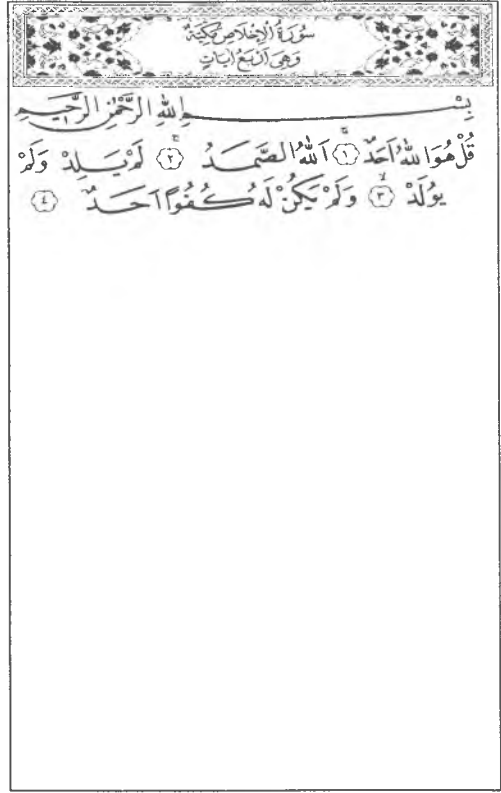 سُورَةُ الْاِخْلَاصِ مَكِّيَّةٌ
وَهِىَ اَرْبَعُ اٰيَاتٍ
بِسْــــــــــــــــمِ اللّٰهِ الرَّحْمٰنِ الرَّحٖيمِ
قُلْ هُوَ اللّٰهُ اَحَدٌۚ ﴿١﴾ اَللّٰهُ الصَّمَدُۚ ﴿٢﴾ لَمْ يَلِدْ وَلَمْ
يُولَدْۙ ﴿٣﴾ وَلَمْ يَكُنْ لَهُ كُفُوًا اَحَدٌ ﴿٤﴾